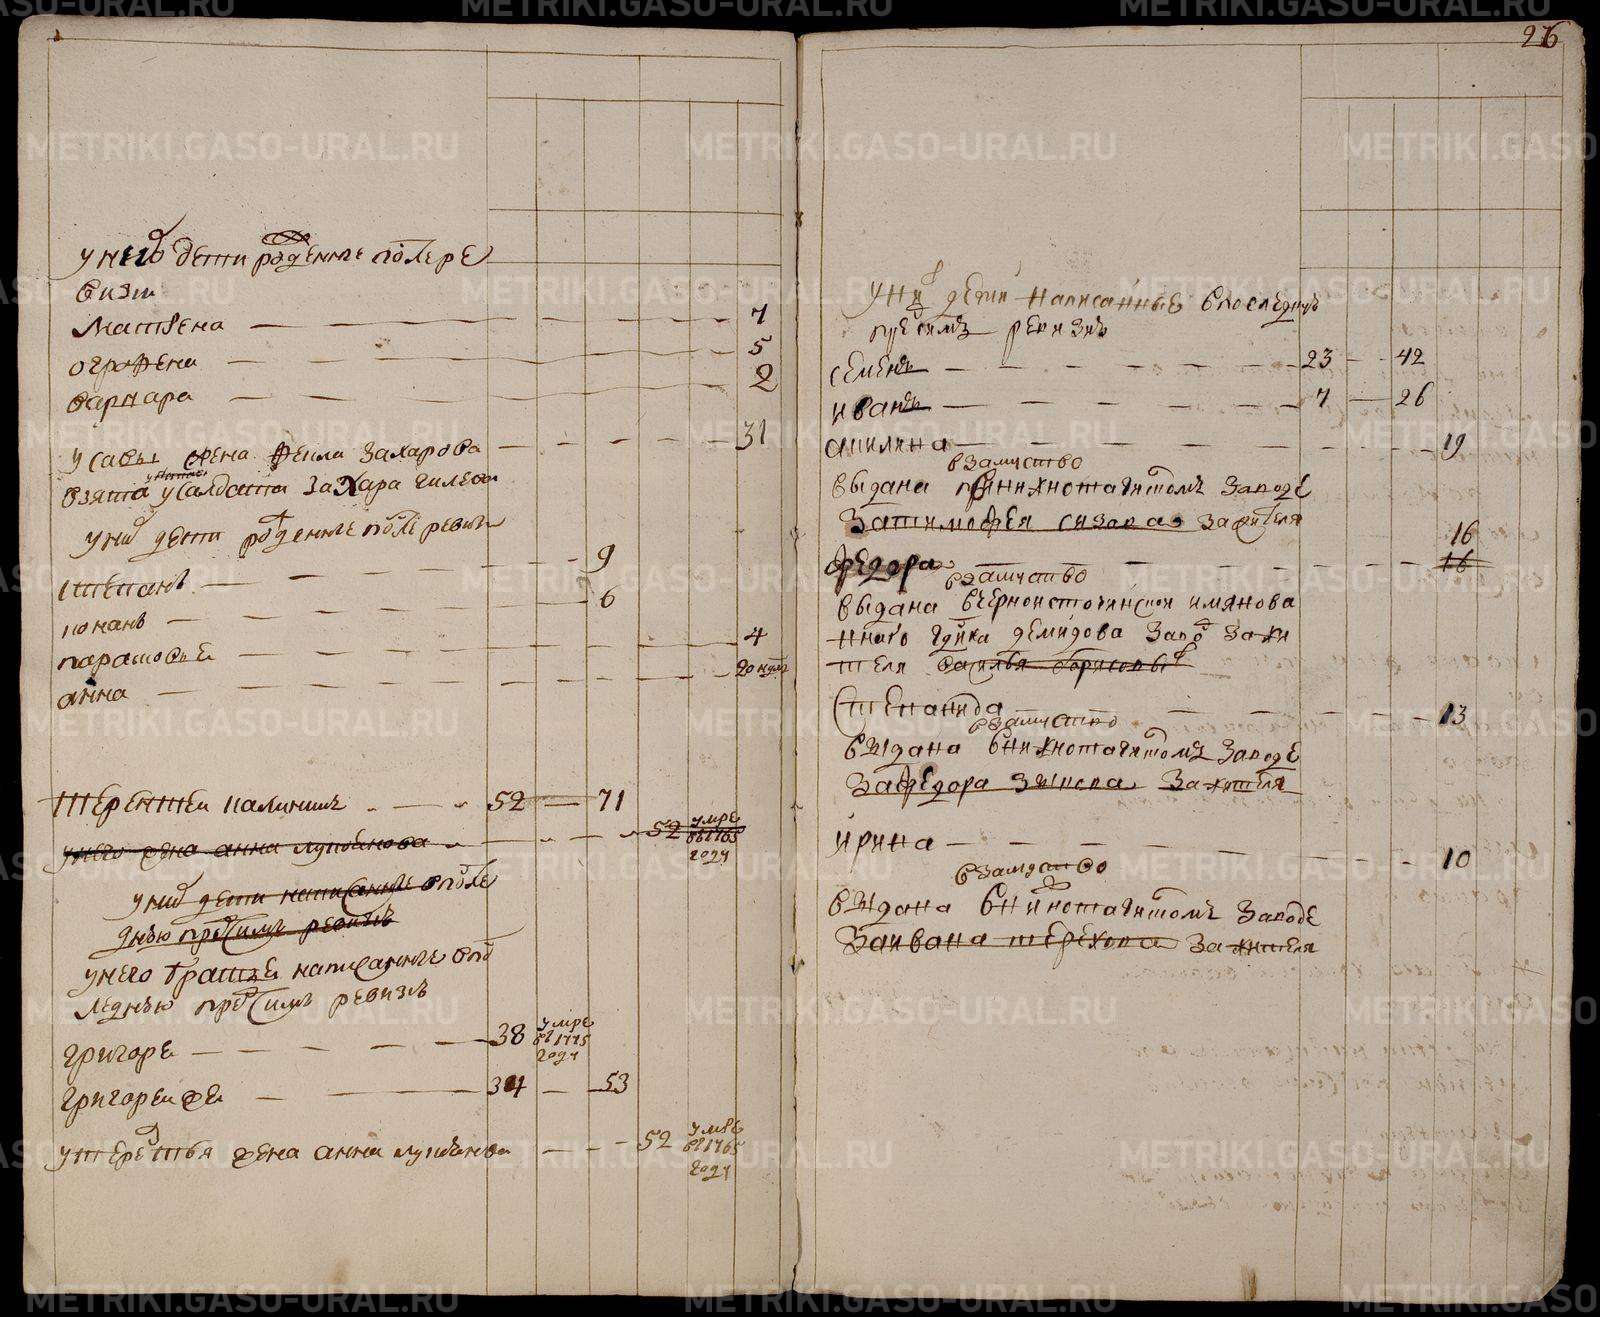 у него дети рожденные после ре
визи
Матрена — 7
огрофена — 5
варвара — 2
у савы жена фекла Захарова — 31
взята у салдата Захара
у них дети рожденные после ревизи
степанъ — 9
романъ — 6
парасковья — 4
анна — полугоду
терентей калининъ — 52 — 71
у него жена анна лукоянова — 52 умре
в 1765
году
у них дети написанные в после
днью пред симъ ревизъ
у него братья написанные в пос
леднью пред симъ ревизъ
григоре — 38 умре
в 1775
году
григорей же — 34 — 53
у терентья жена анна лукоянова — 52 умре
в 1765
году
26
у них дети написанные в последную
пред симъ ревизию
семенъ — 23 — 42
иванъ — 7 — 26
акилина — 19
в замуство
выдана в нижнотагитомъ Заводе
За тимофея сизова За жителя
федора — 16
16
в замуство
выдана в черноисточинской имянова
нного гдина демидова Завод За жи
теля василья борисовых
Степанида — 13
в замуство
выдана в нижнотагитомъ Заводе
За федора За жителя
ирина — 10
в замуство
выдана в нижнотагитомъ Заводе
За ивана терехова За жителя
METRIKI.GASO-URAL.RU